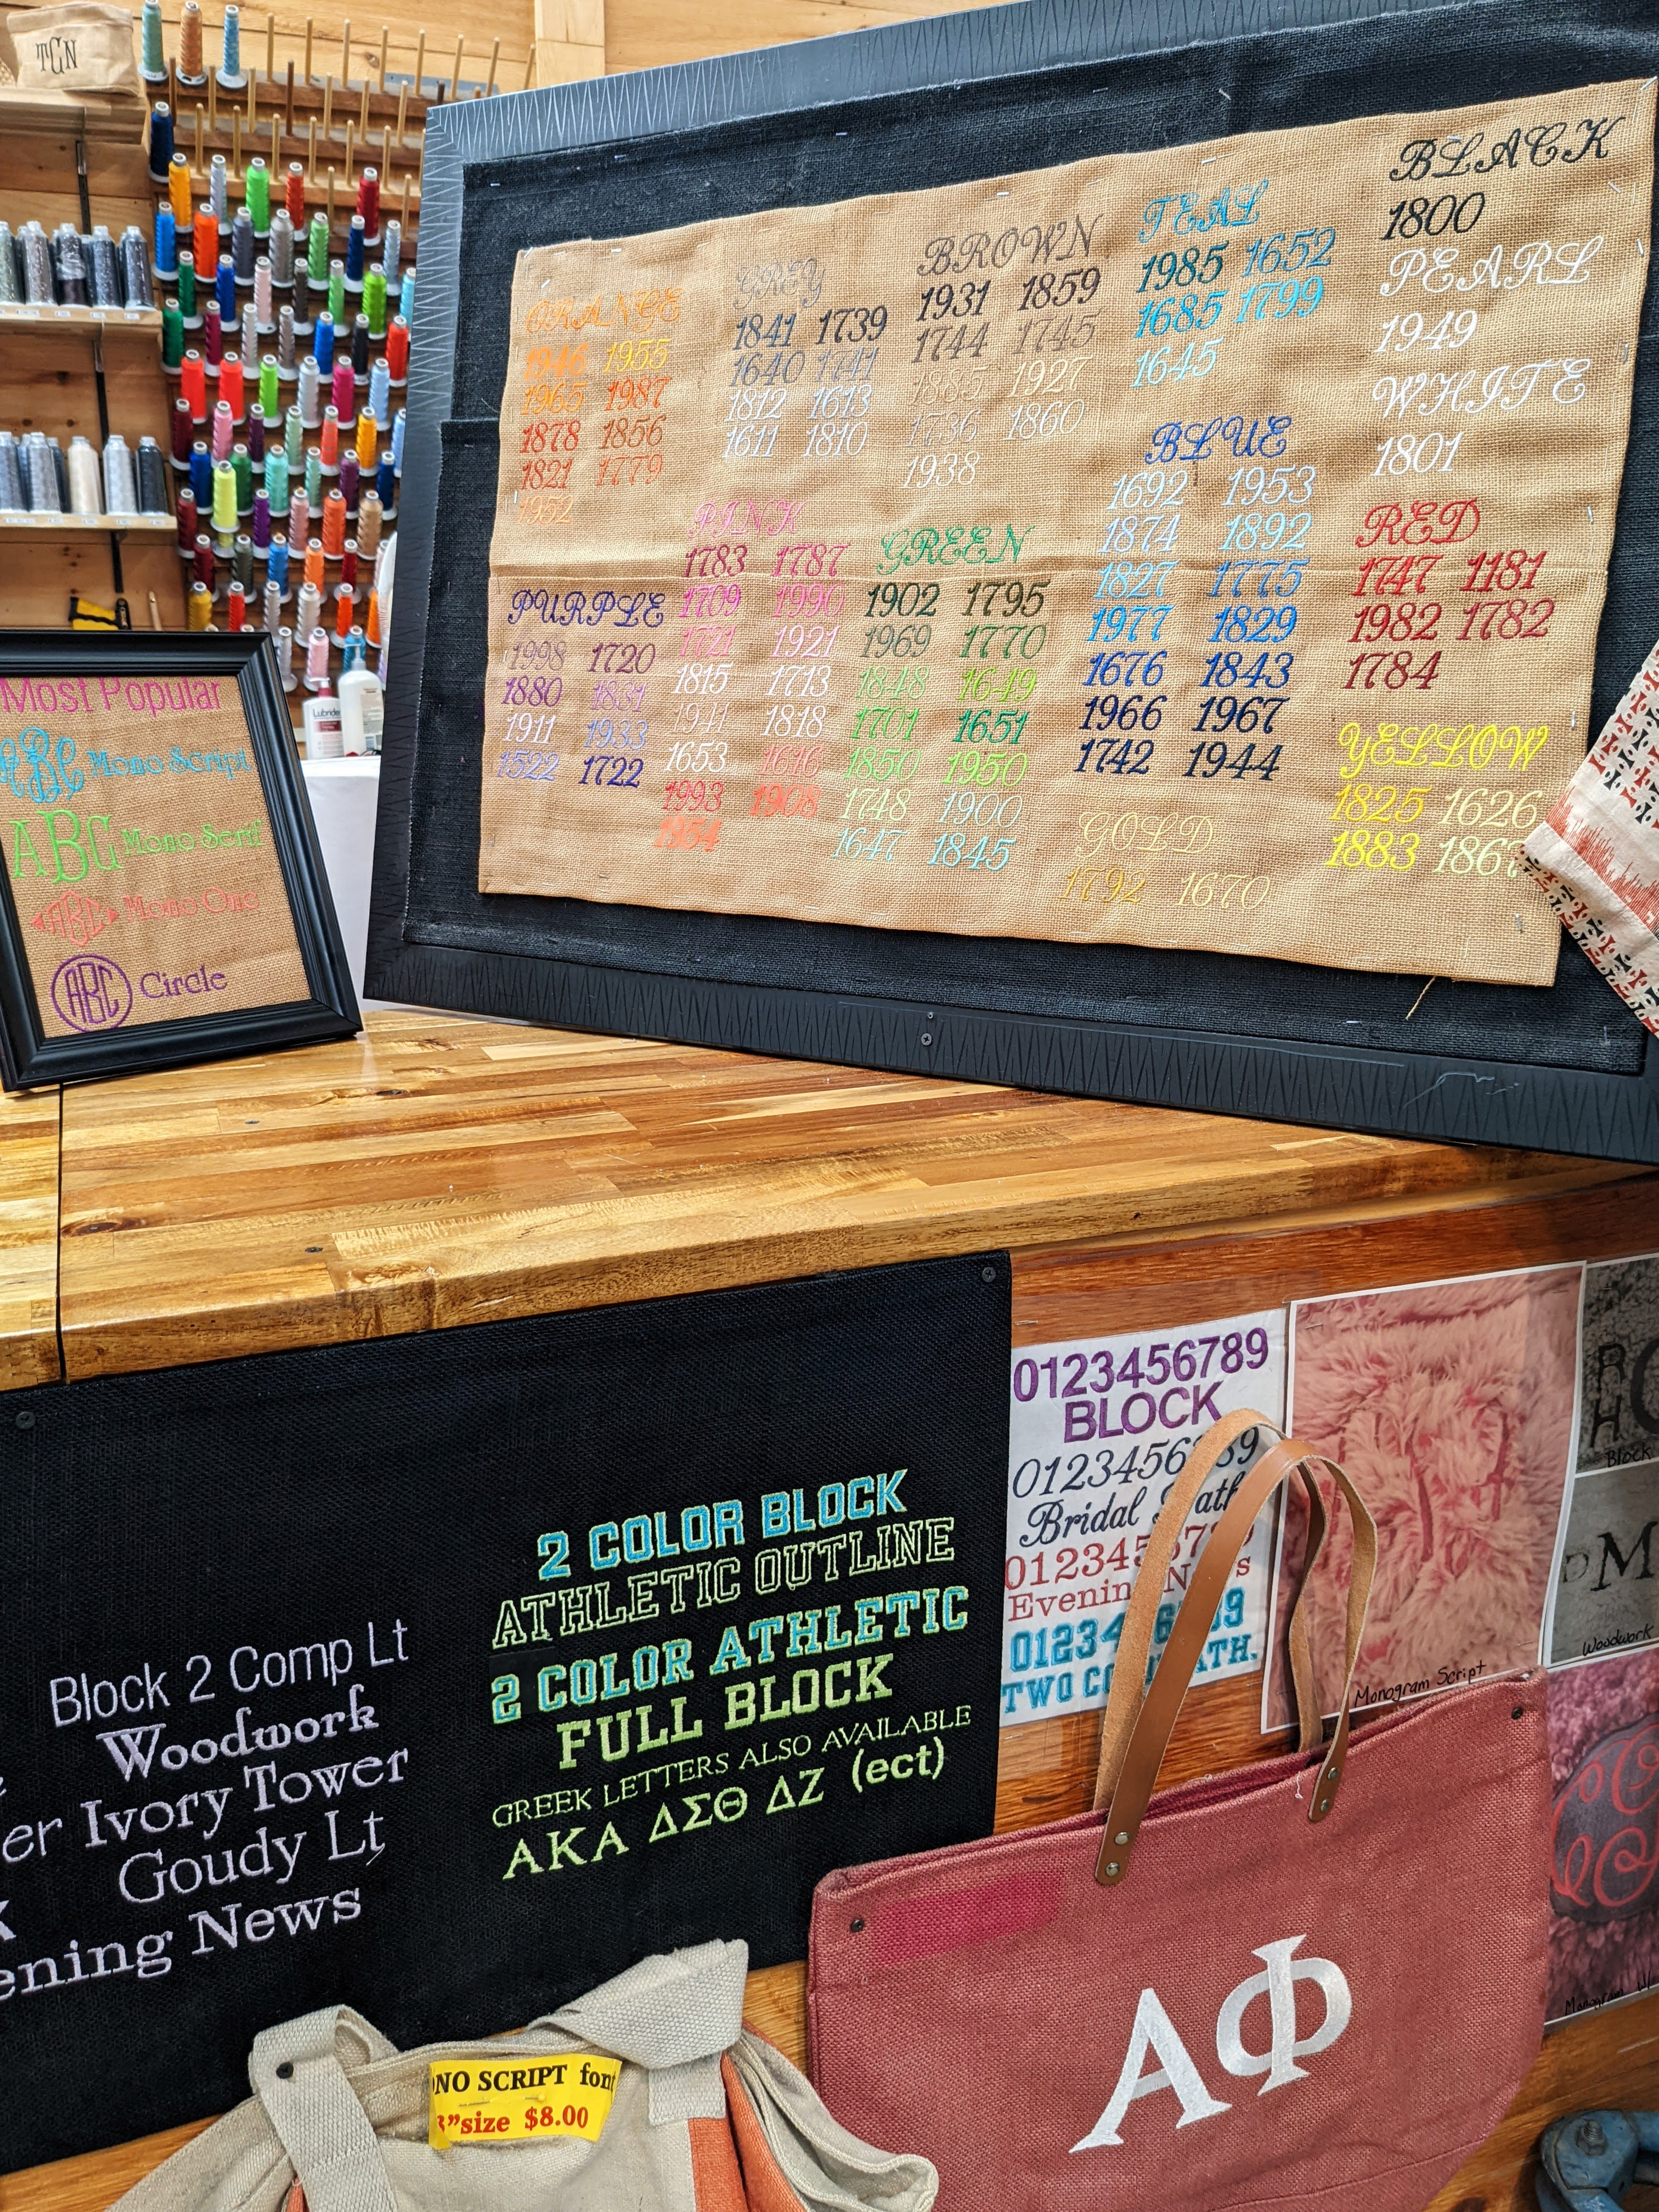 TGN
BLACK
1800
PEARL
1949
WHITE
1801
TEAL
1985 1652
1685 1799
1645
BROWN
1931 1859
1744 1745
1885 1927
1736 1860
1938
GREY
1841 1739
1640 1741
1812 1613
1611 1810
ORANGE
1946 1955
1965 1987
1878 1856
1821 1779
1952
BLUE
1692 1953
1874 1892
1827 1775
1977 1829
1676 1843
1966 1967
1742 1944
RED
1747 1181
1982 1782
1784
PINK
1783 1787
1709 1990
1721 1921
1815 1713
1941 1818
1653 1616
1993 1908
1954
GREEN
1902 1795
1969 1770
1848 1649
1701 1651
1850 1950
1748 1900
1647 1845
PURPLE
1998 1720
1880 1831
1911 1933
1522 1722
YELLOW
1825 1626
1883 1867
GOLD
1792 1670
Lubriderm
Most Popular
ABC Mono Script
ABC Mono Serif
ABC Mono One
ABC Circle
Block 2 Comp Lt
Woodwork
Ivory Tower
Goudy Lt
ening News
2 COLOR BLOCK
ATHLETIC OUTLINE
2 COLOR ATHLETIC
FULL BLOCK
GREEK LETTERS ALSO AVAILABLE
ΑΚΑ ΔΣΘ ΔΖ (ect)
0123456789
BLOCK
0123456 89
Bridal Path
0123456789
Evening News
0123456789
TWO CO ATH.
Monogram Script
Block
DM
Woodwork
Monogram
ΑΦ
NO SCRIPT font
3"size $8.00